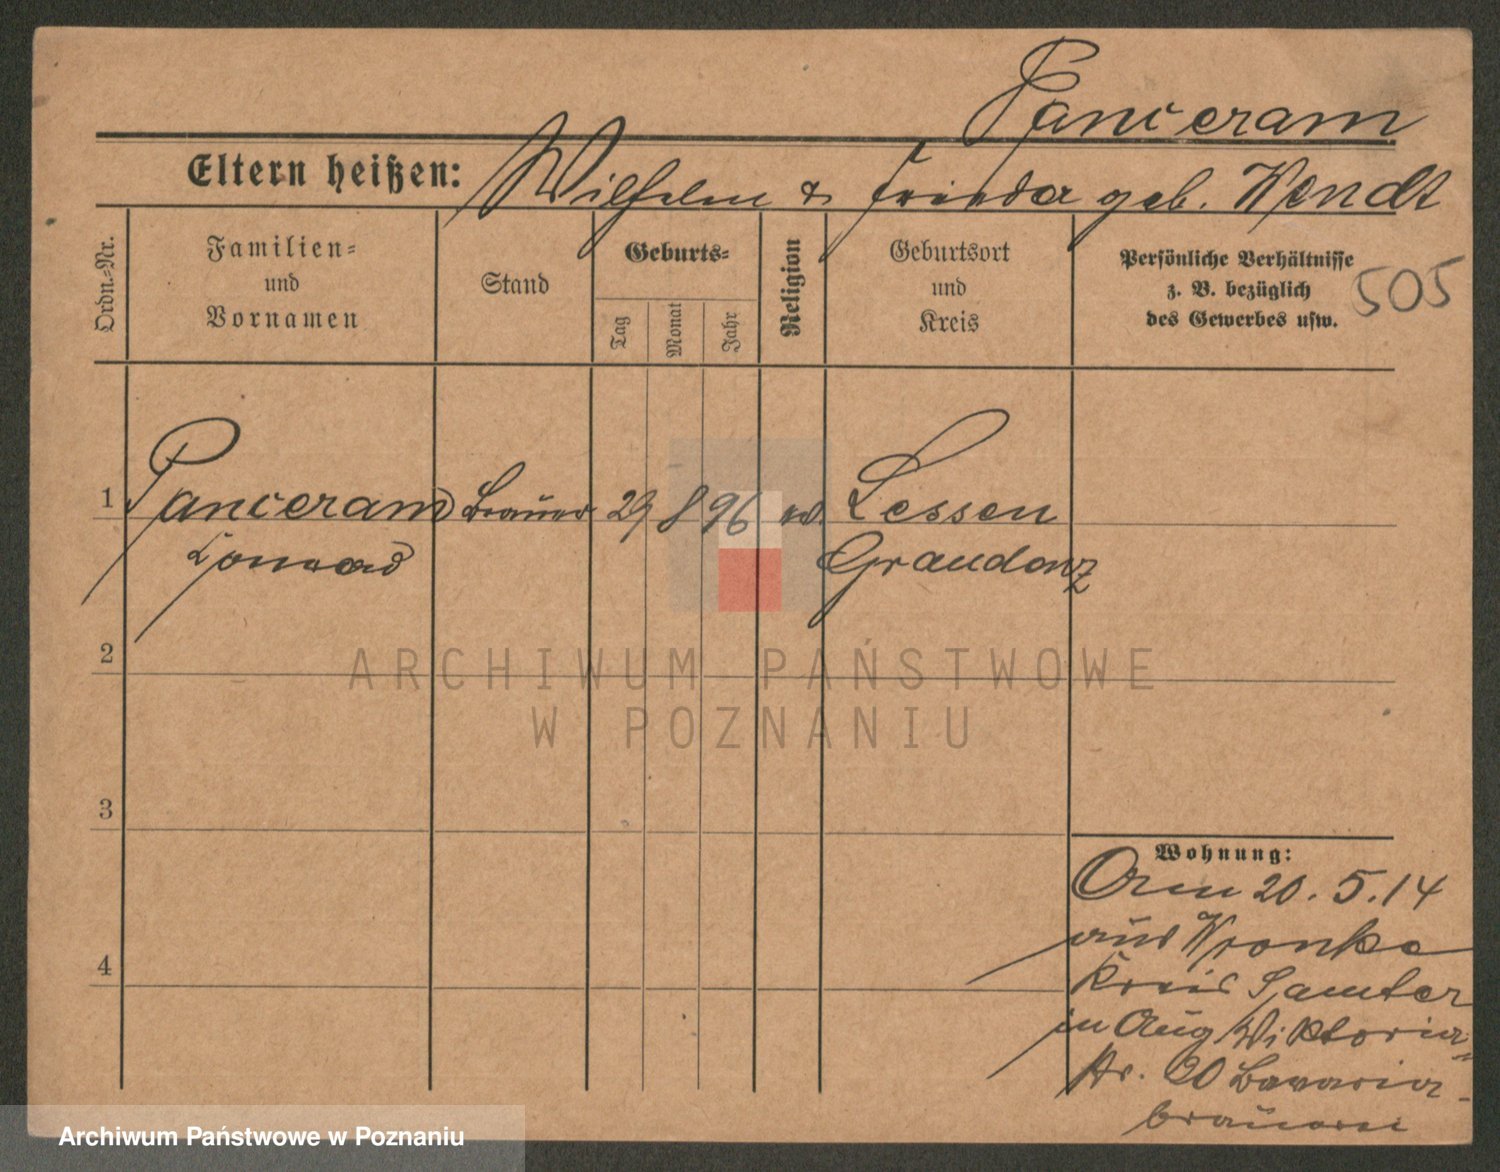 Panceram
Eltern heißen: Wilhelm & Frieda geb. Wendt
Ordn.=Nr.
Familien=
und
Vornamen
Stand
Geburts=
Tag
Monat
Jahr
Religion
Geburtsort
und
Kreis
Persönliche Verhältnisse
z. B. bezüglich
des Gewerbes usw.
505
1 Panceram Brauer 29 8 96 ev. Lessen
Konrad Graudenz
2
ARCHIWUM PAŃSTWOWE
W POZNANIU
3
4
Wohnung:
Am 20.5.14
aus Wronke
Kreis Samter
in Aug Wiktoria=
str. 20 Bavaria-
brauerei
Archiwum Państwowe w Poznaniu